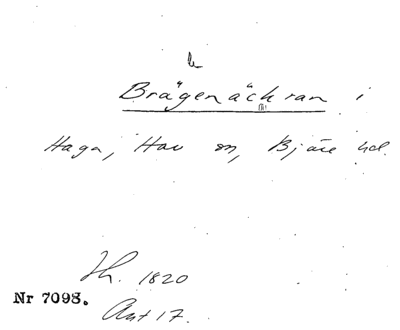 Brägenäckran i
Haga, Hov sn, Bjäre hd.
Jh. 1820
Nr 7098.
Akt 17.